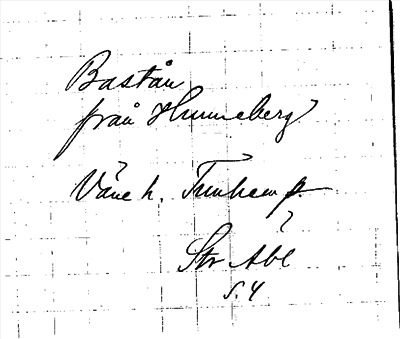 Bastån
från Hunneberg
Väne h. Tunhem p.
?
Str Abl
s. 4